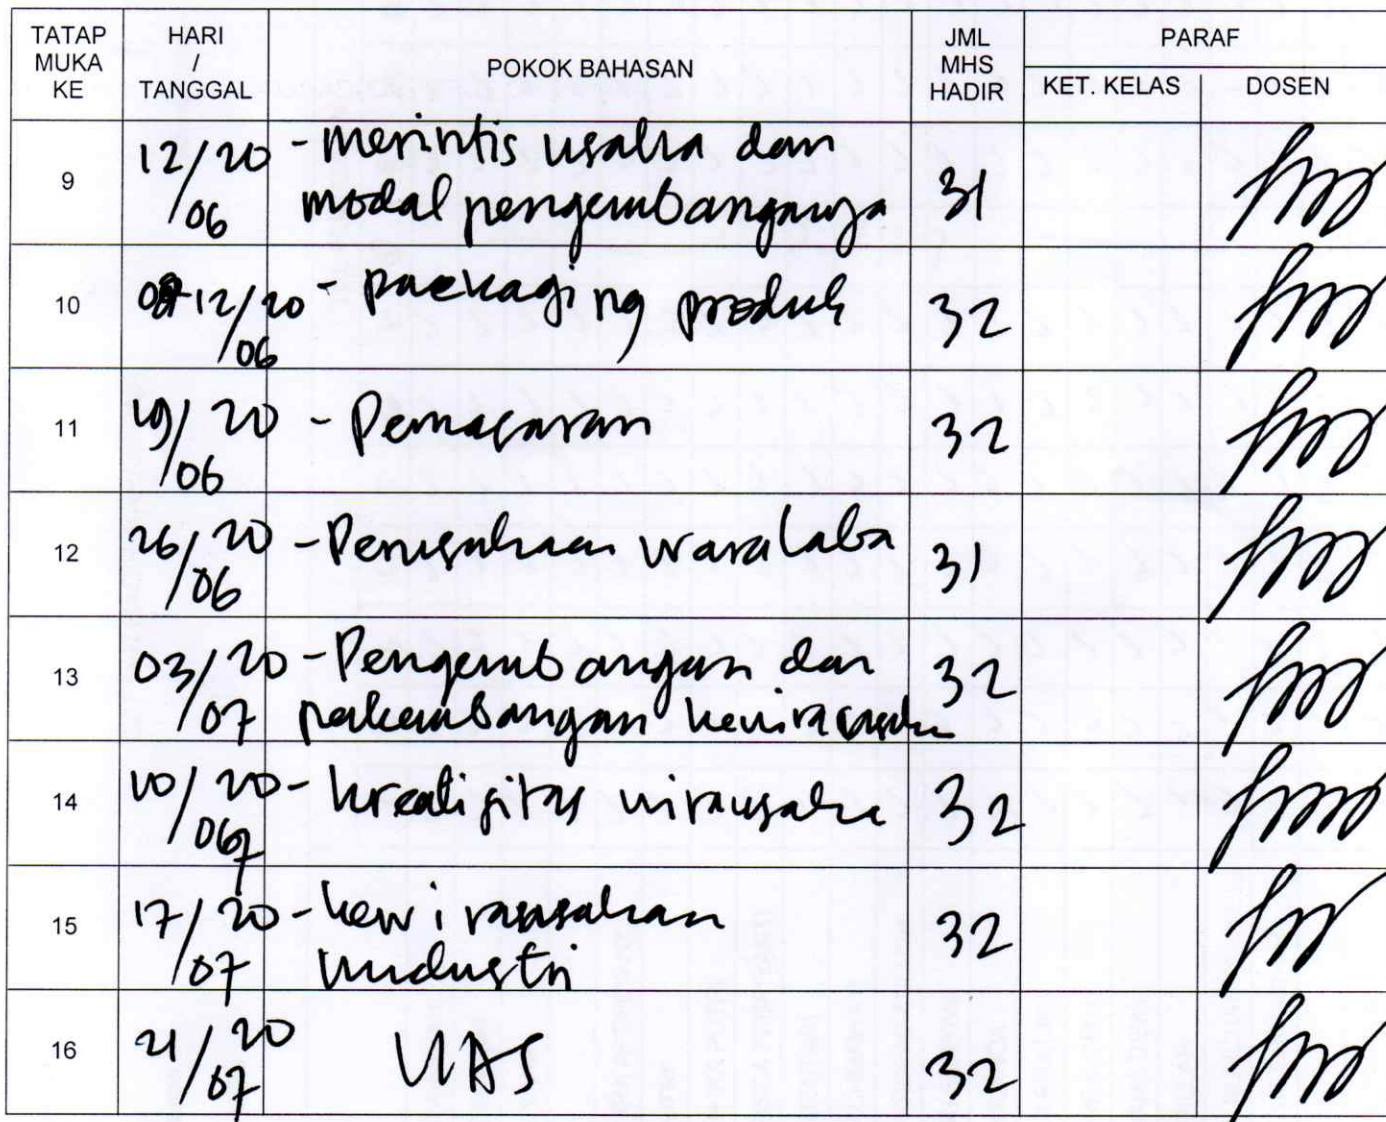 TATAP MUKA KE HARI / TANGGAL POKOK BAHASAN JML MHS HADIR PARAF
KET. KELAS DOSEN
9 12/20 /06 - merintis usaha dan 31
modal pengembanganya
10 12/20 /06 - packaging produk 32
11 19/20 /06 - Pemasaran 32
12 26/20 /06 - Perusahaan waralaba 31
13 03/20 /07 - Pengembangan dan 32
perkembangan kewirausaha
14 10/20 /07 - kreatifitas wirausaha 32
15 17/20 /07 - kewirausahaan 32
industri
16 21/20 /07 UAS 32